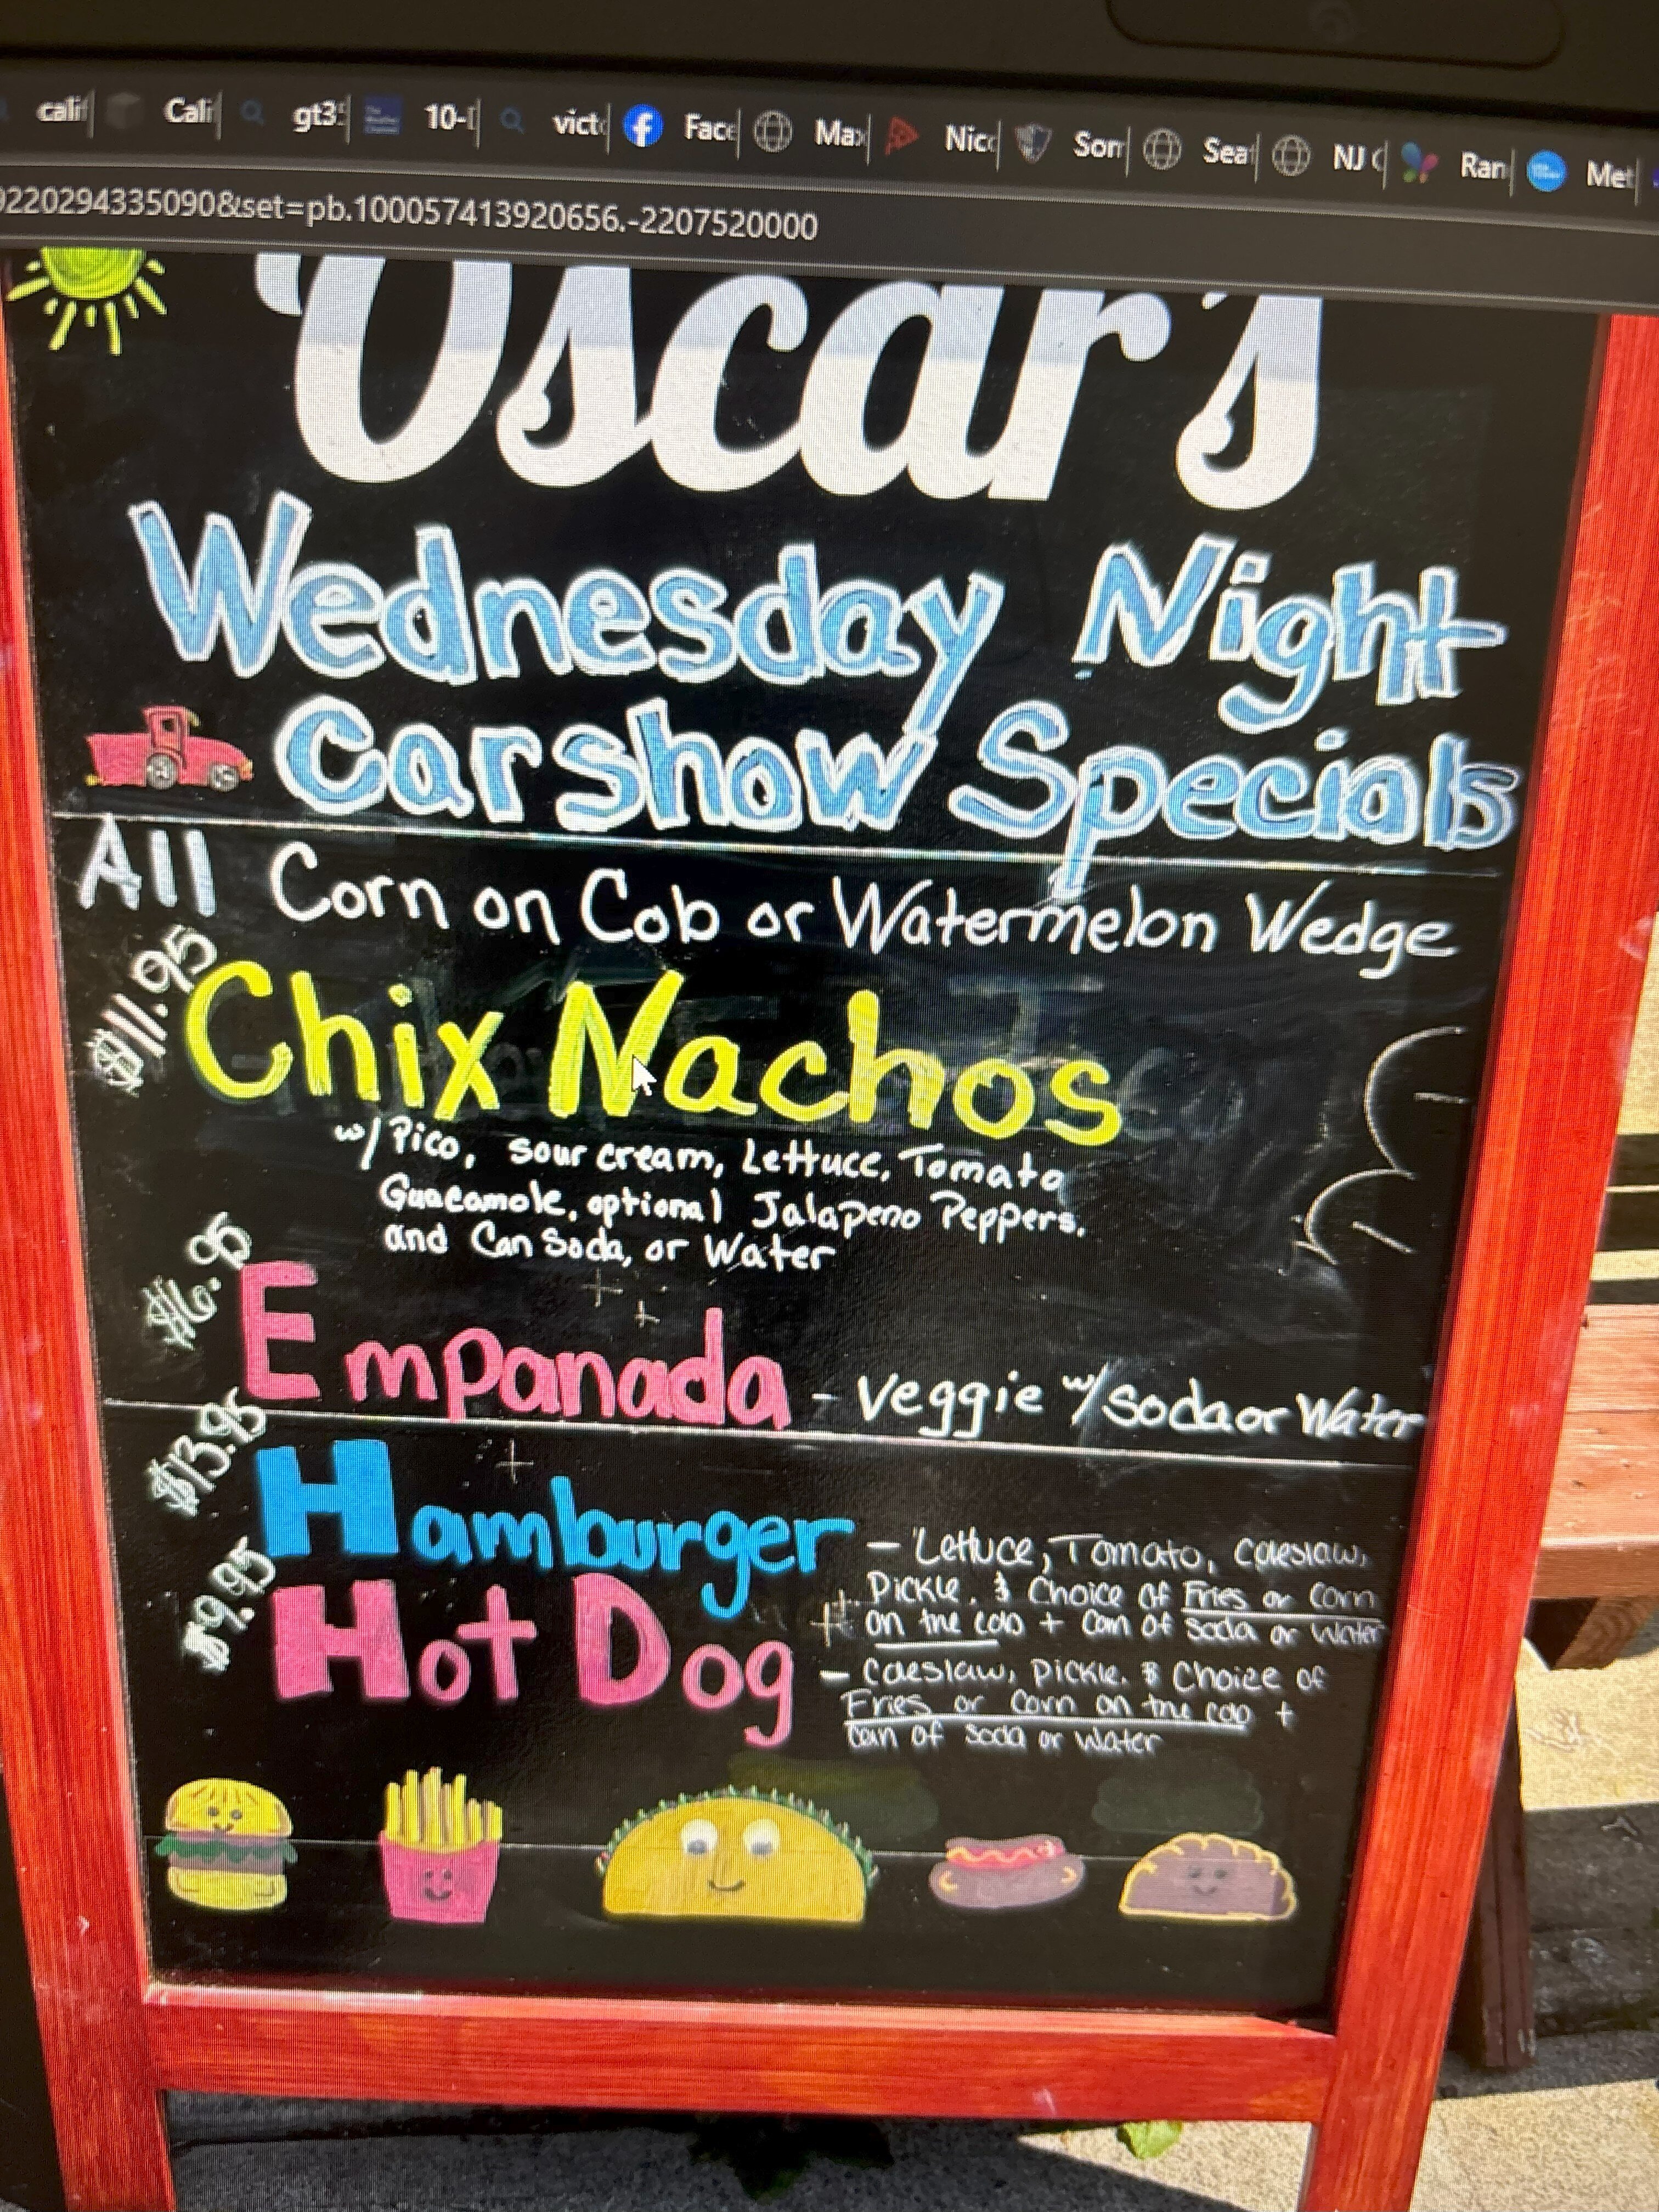 calif
Cali
gt3
10-
vict
Face
Max
Nico
Som
Sea
NJ
Ran
Met
9220294335090&set=pb.100057413920656.-2207520000
Oscar's
Wednesday Night
Carshow Specials
All Corn on Cob or Watermelon Wedge
$11.95 Chix Nachos
w/ Pico, sour cream, Lettuce, Tomato
Guacamole, optional Jalapeno Peppers.
and Can Soda, or Water
Empanada - Veggie w/ Soda or Water
$13.95 Hamburger - Lettuce, Tomato, Coleslaw,
Pickle. & Choice of Fries or Corn
on the cob + Can of Soda or Water
$9.95 Hot Dog - Coleslaw, Pickle. & Choice of
Fries or Corn on the cob +
Can of Soda or Water